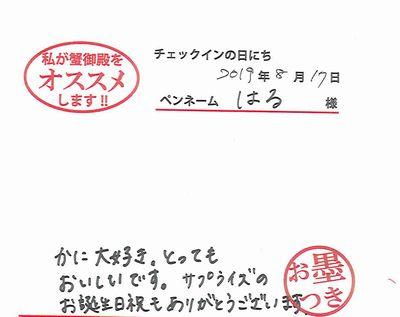 私が蟹御殿を
オススメ
します!!
チェックインの日にち
2019年8月17日
ペンネーム はる 様
かに大好き。とっても
おいしいです。サプライズの
お誕生日祝もありがとうございます。
お墨つき